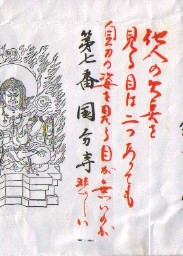 他人の欠点を
見る目は二つあっても
自分の姿を見る目が無いのが
悲しい
第七番 国分寺